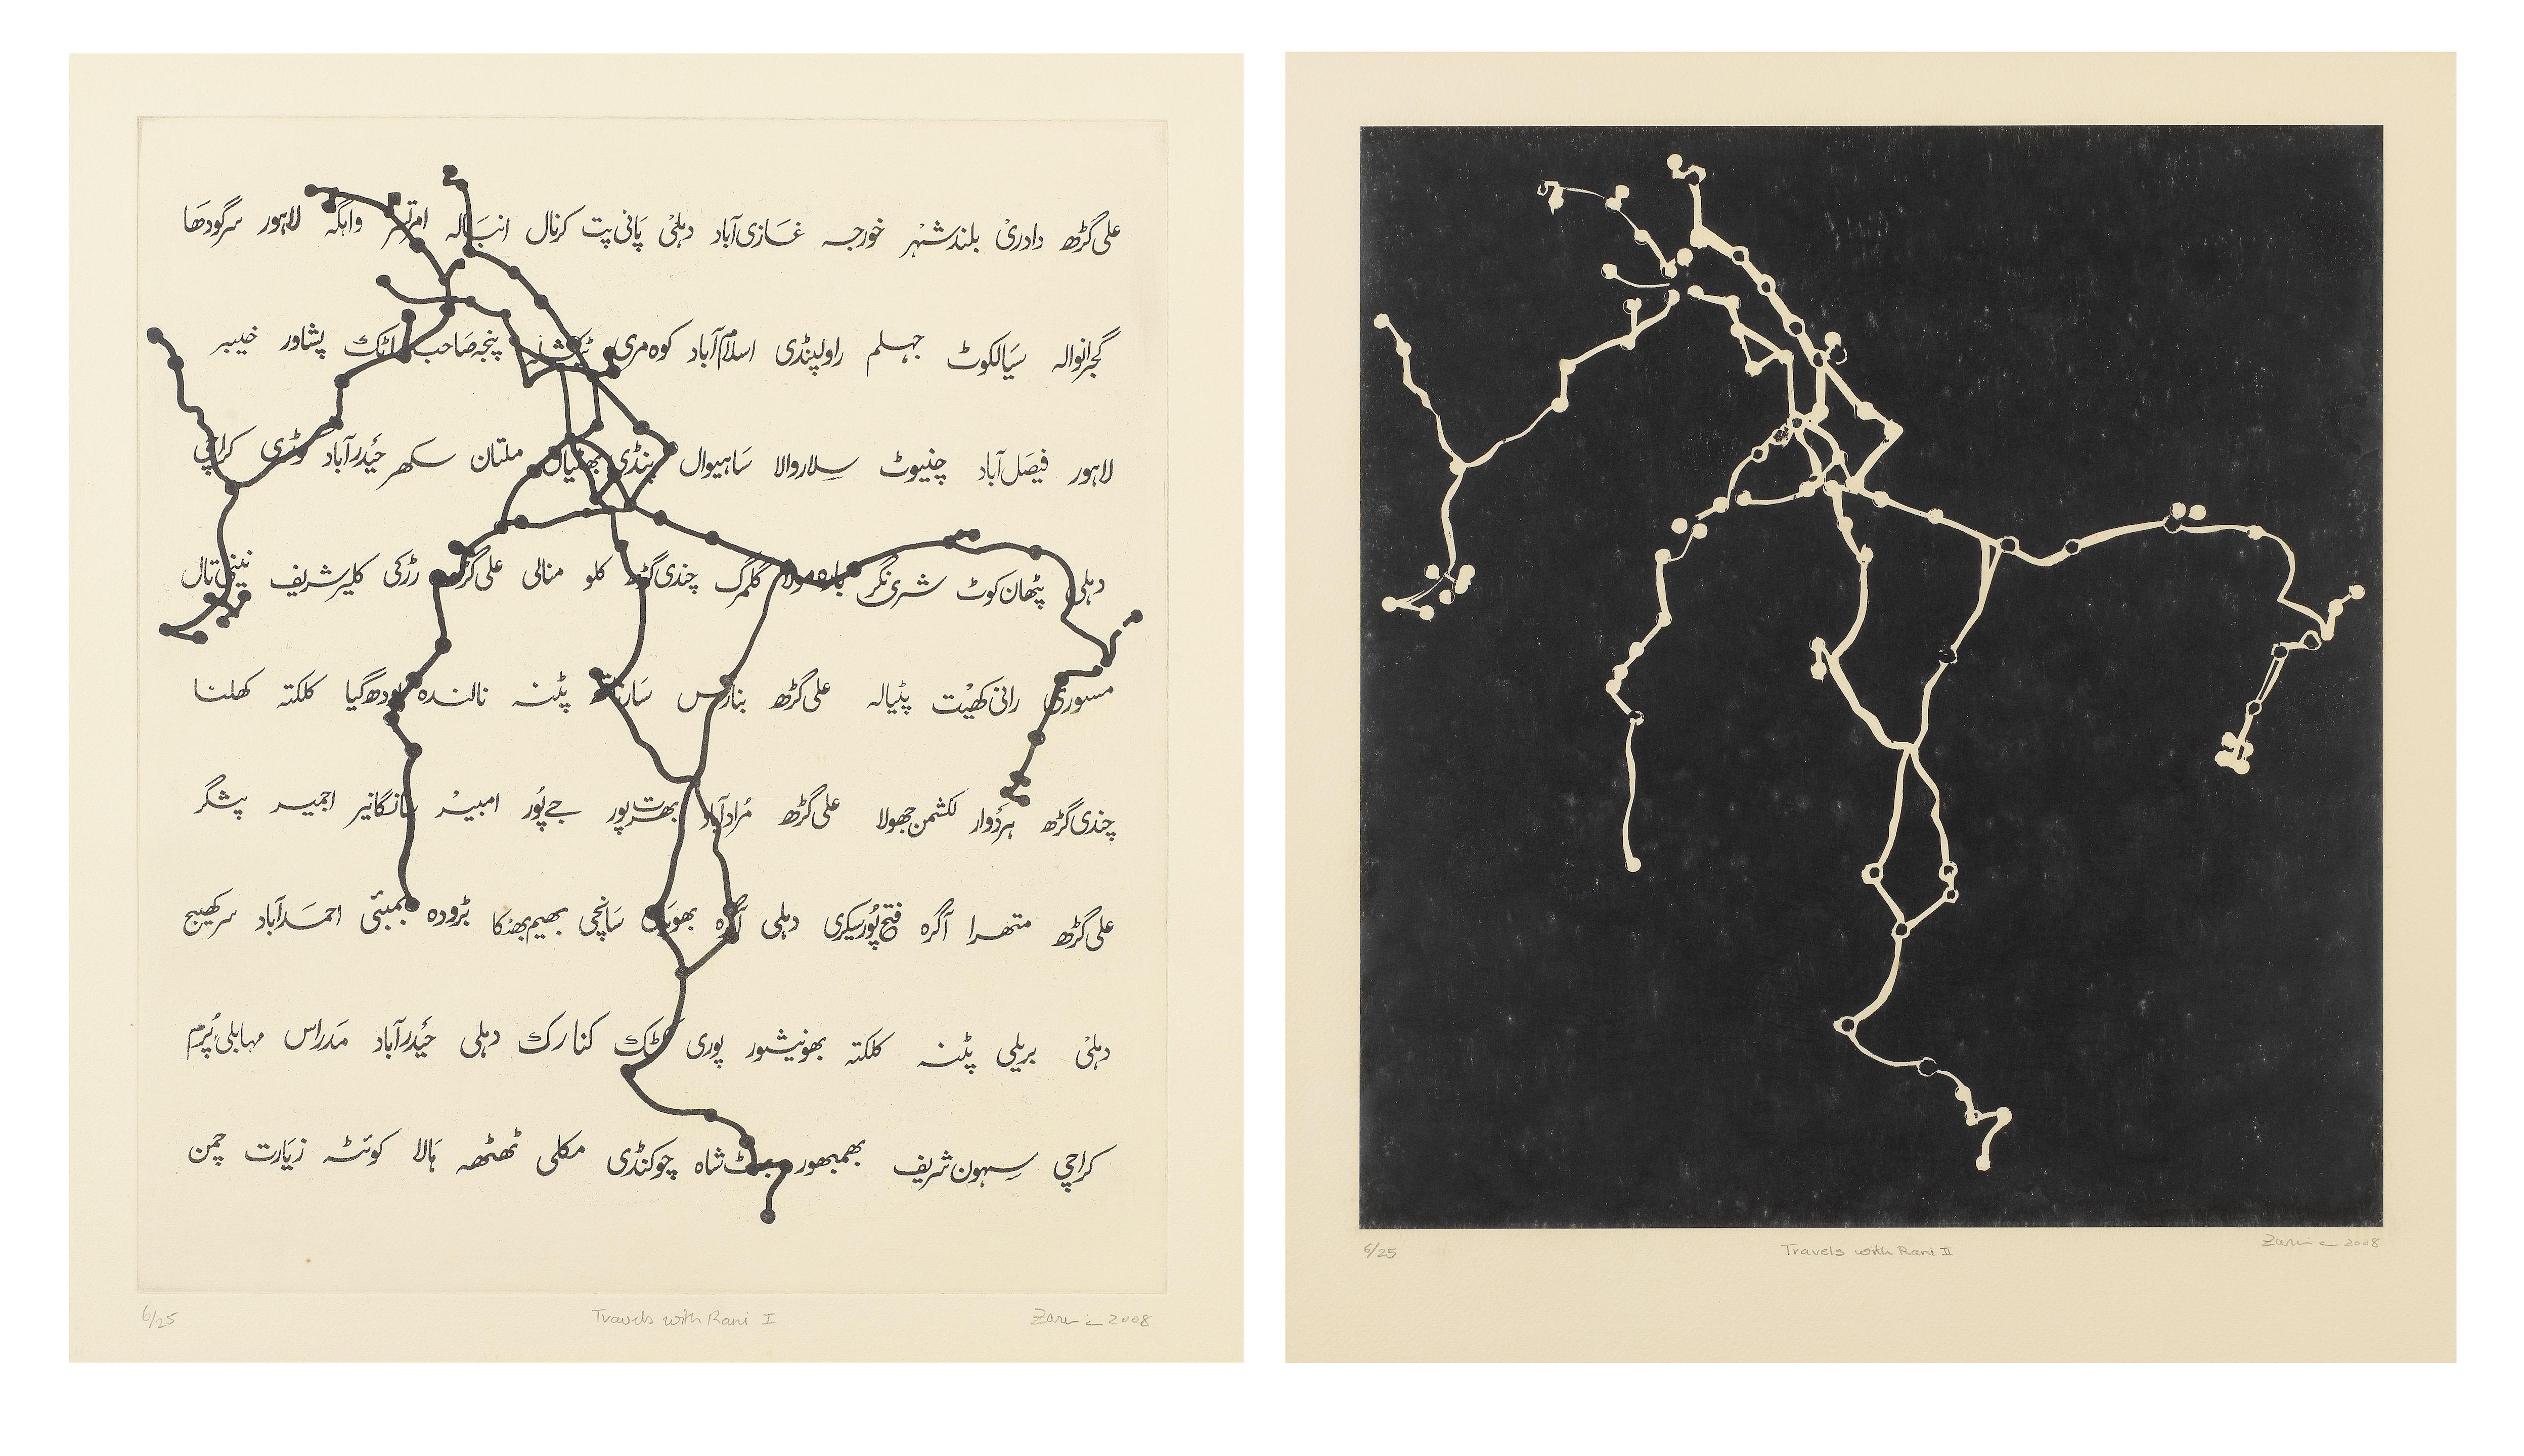 علی گڑھ دادری بلندشہر خورجہ غازی آباد دہلی پانی پت کرنال انبالہ امرتسر واہگہ لاہور سرگودھا
گجرانوالہ سیالکوٹ جہلم راولپنڈی اسلام آباد کوہ مری ٹیکشلہ پنجہ صاحب اٹک پشاور خیبر
لاہور فیصل آباد چنیوٹ سلاروالا ساہیوال پنڈی بھٹیاں ملتان سکھر حیدرآباد کوٹری کراچی
دہلی پٹھان کوٹ شری نگر بارہ مولا گلمرگ چندی گڑھ کلو منالی علی گڑھ رڑکی کلیر شریف نینی تال
مسوری رانی کھیت پٹیالہ علی گڑھ بنارس سارناتھ پٹنہ نالندہ بودھ گیا کلکتہ کھلنا
چندی گڑھ ہردوار لکشمن جھولا علی گڑھ مُرادآباد بھرت پور جے پُور امبیر سانگانیر اجمیر پشکر
علی گڑھ متھرا آگرہ فتح پُور سیکری دہلی آگرہ بھوپال سانچی بھیم بھٹکا بڑودہ بمبئی احمدآباد سرکھیج
دہلی بریلی پٹنہ کلکتہ بھونیشور پوری کٹک کنارک دہلی حیدرآباد مدراس مہابلی پُرم
کراچی سہون شریف بھمبھور بھٹ شاہ چوکنڈی مکلی ٹھٹھہ ہالا کوئٹہ زیارت چمن
6/25 Travels with Rani I Zarina 2008
6/25 Travels with Rani II Zarina 2008